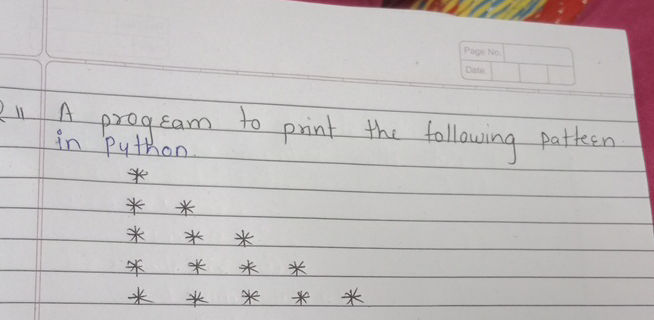 Page No.
Date
Q 11 A program to print the following pattern
in Python.
*
* *
* * *
* * * *
* * * * *